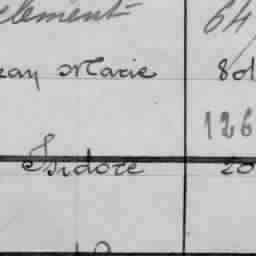 clement 64
ean Marie 801
126
Isidore 20